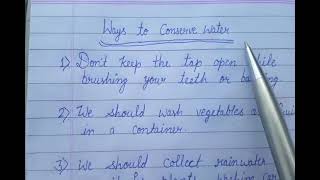 Ways to Conserve Water
1) Don't keep the tap open
brushing your teeth or
2) We should wash vegetables
in a container.
3) We should collect rainwater
plants